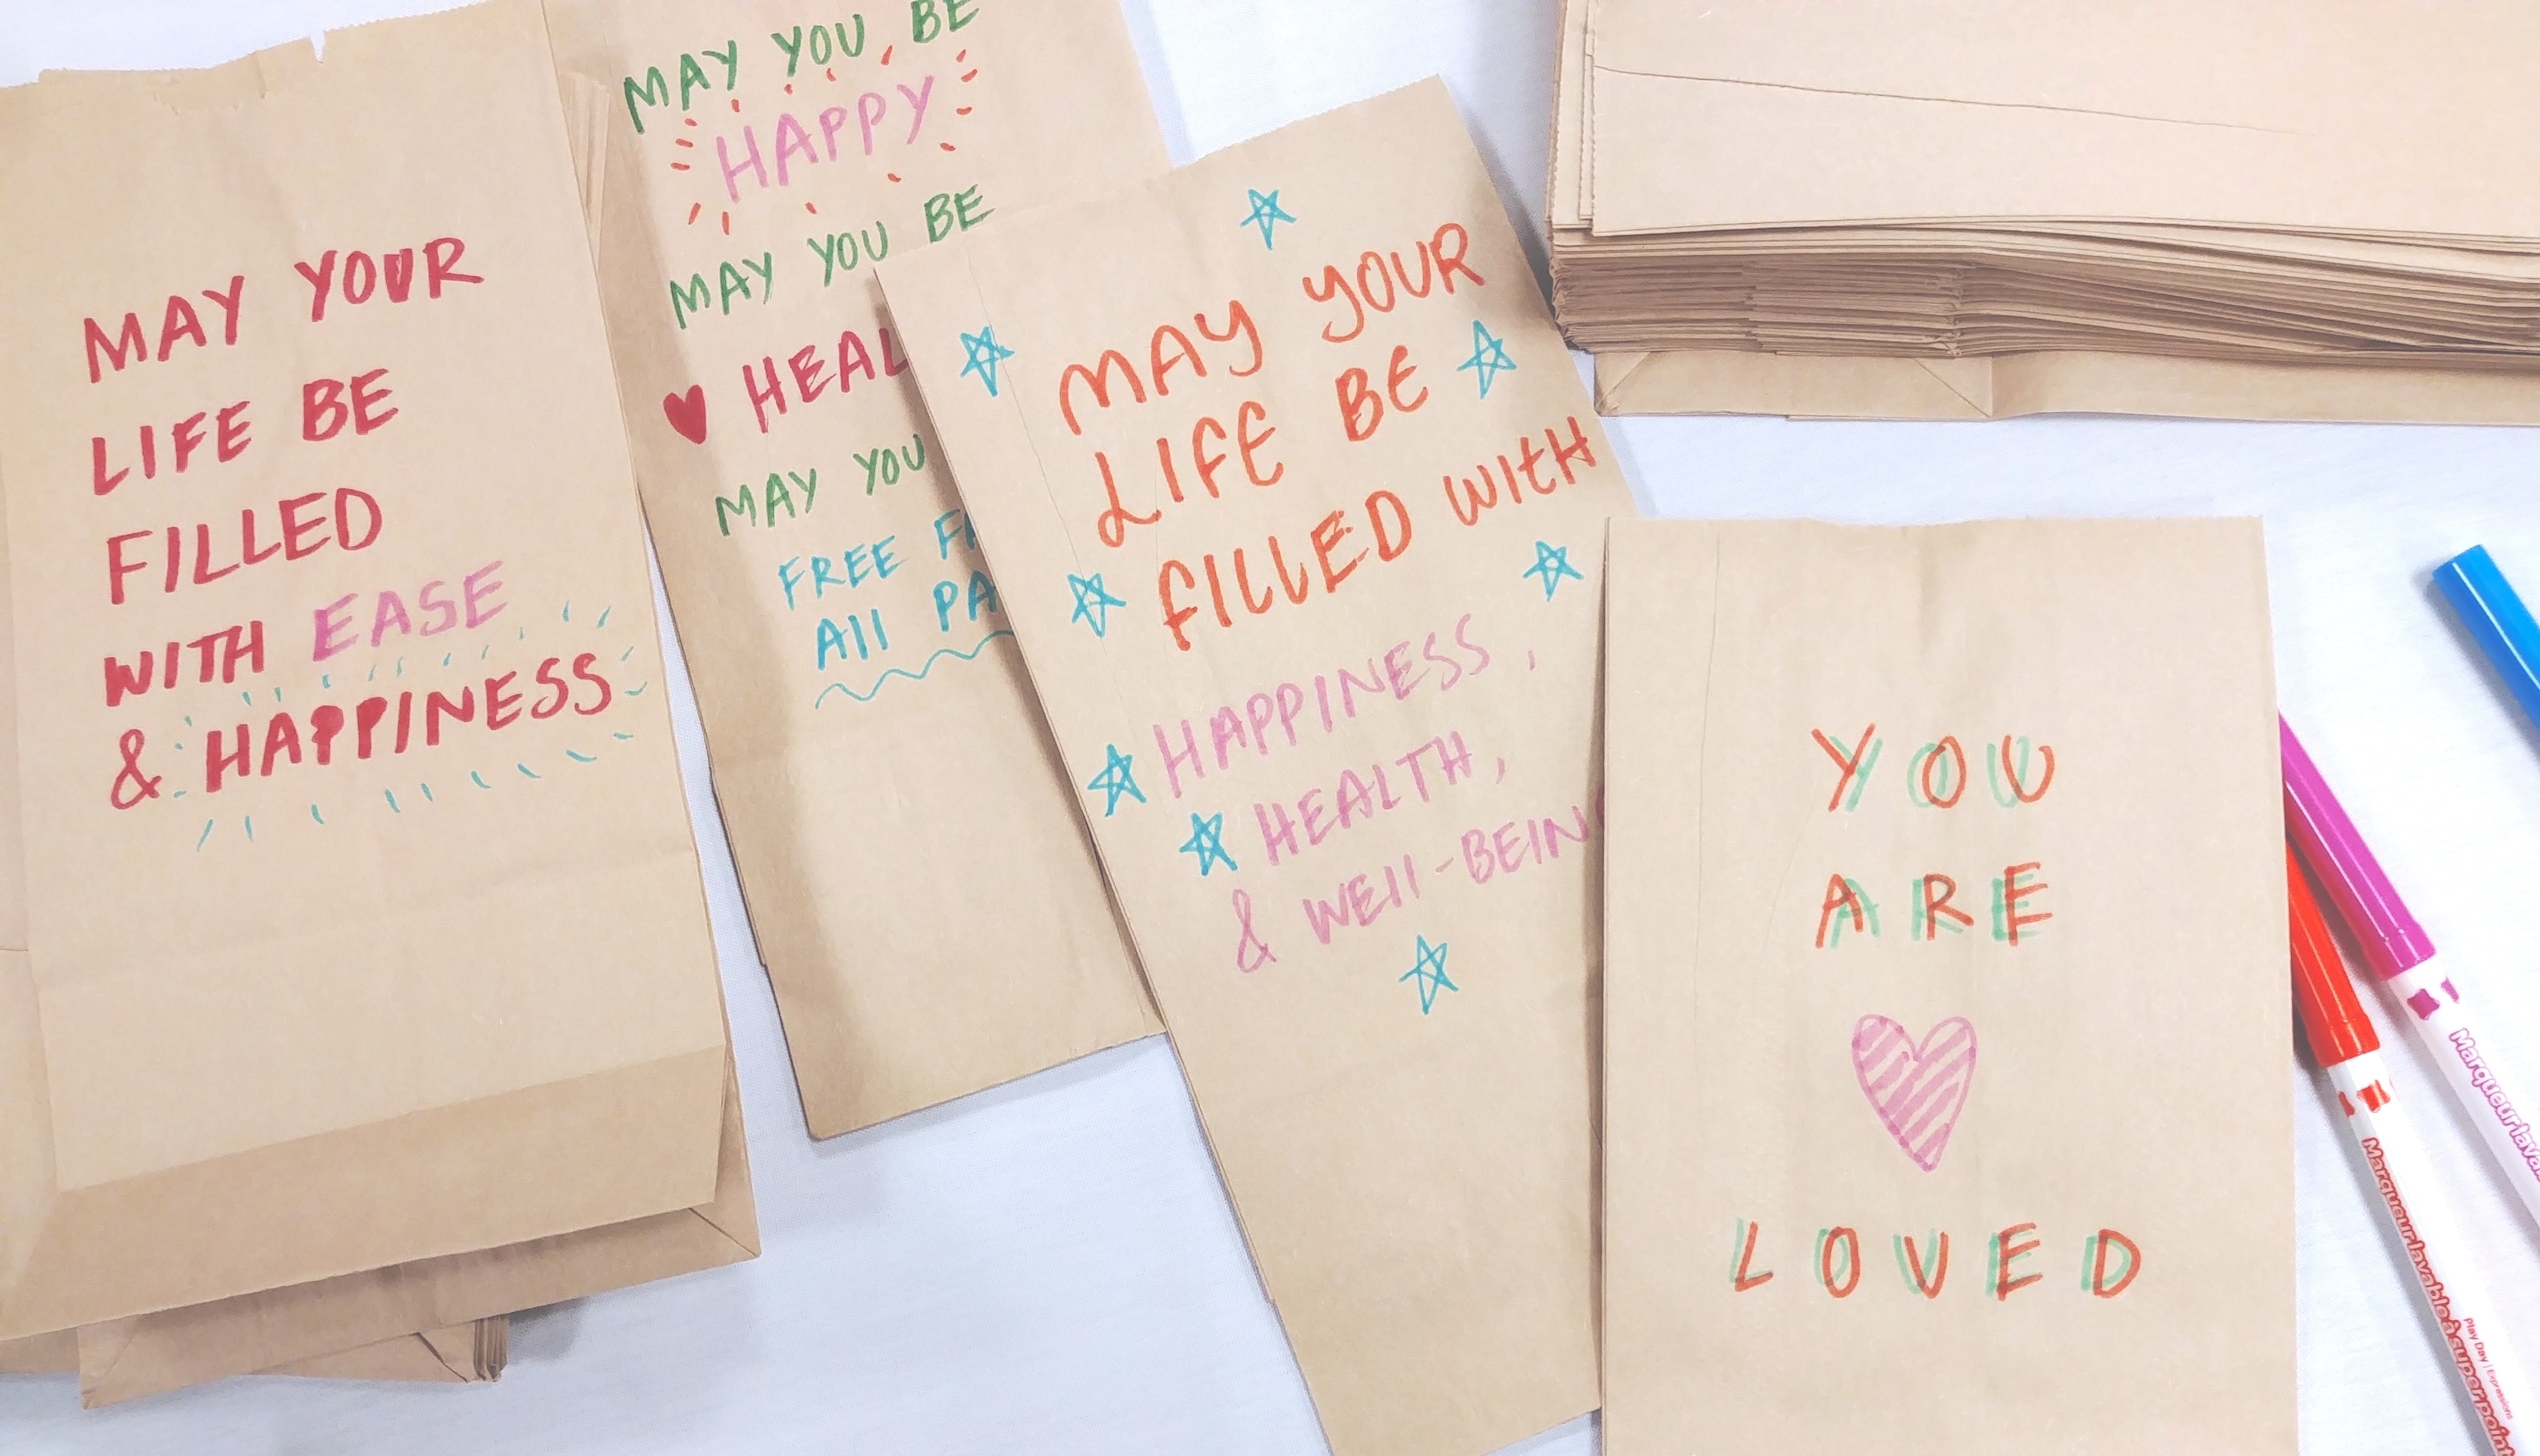 MAY YOUR
LIFE BE
FILLED
WITH EASE
& HAPPINESS
MAY YOU BE
HAPPY
MAY YOU BE
HEAL
MAY YOU
FREE
All PA
MAY YOUR
LIFE BE
FILLED WITH
HAPPINESS,
HEALTH,
& WEll-BEIN
YOU
ARE
LOVED
Marqueur lavable à super point
Play Day | Expressions
Marqueur lava